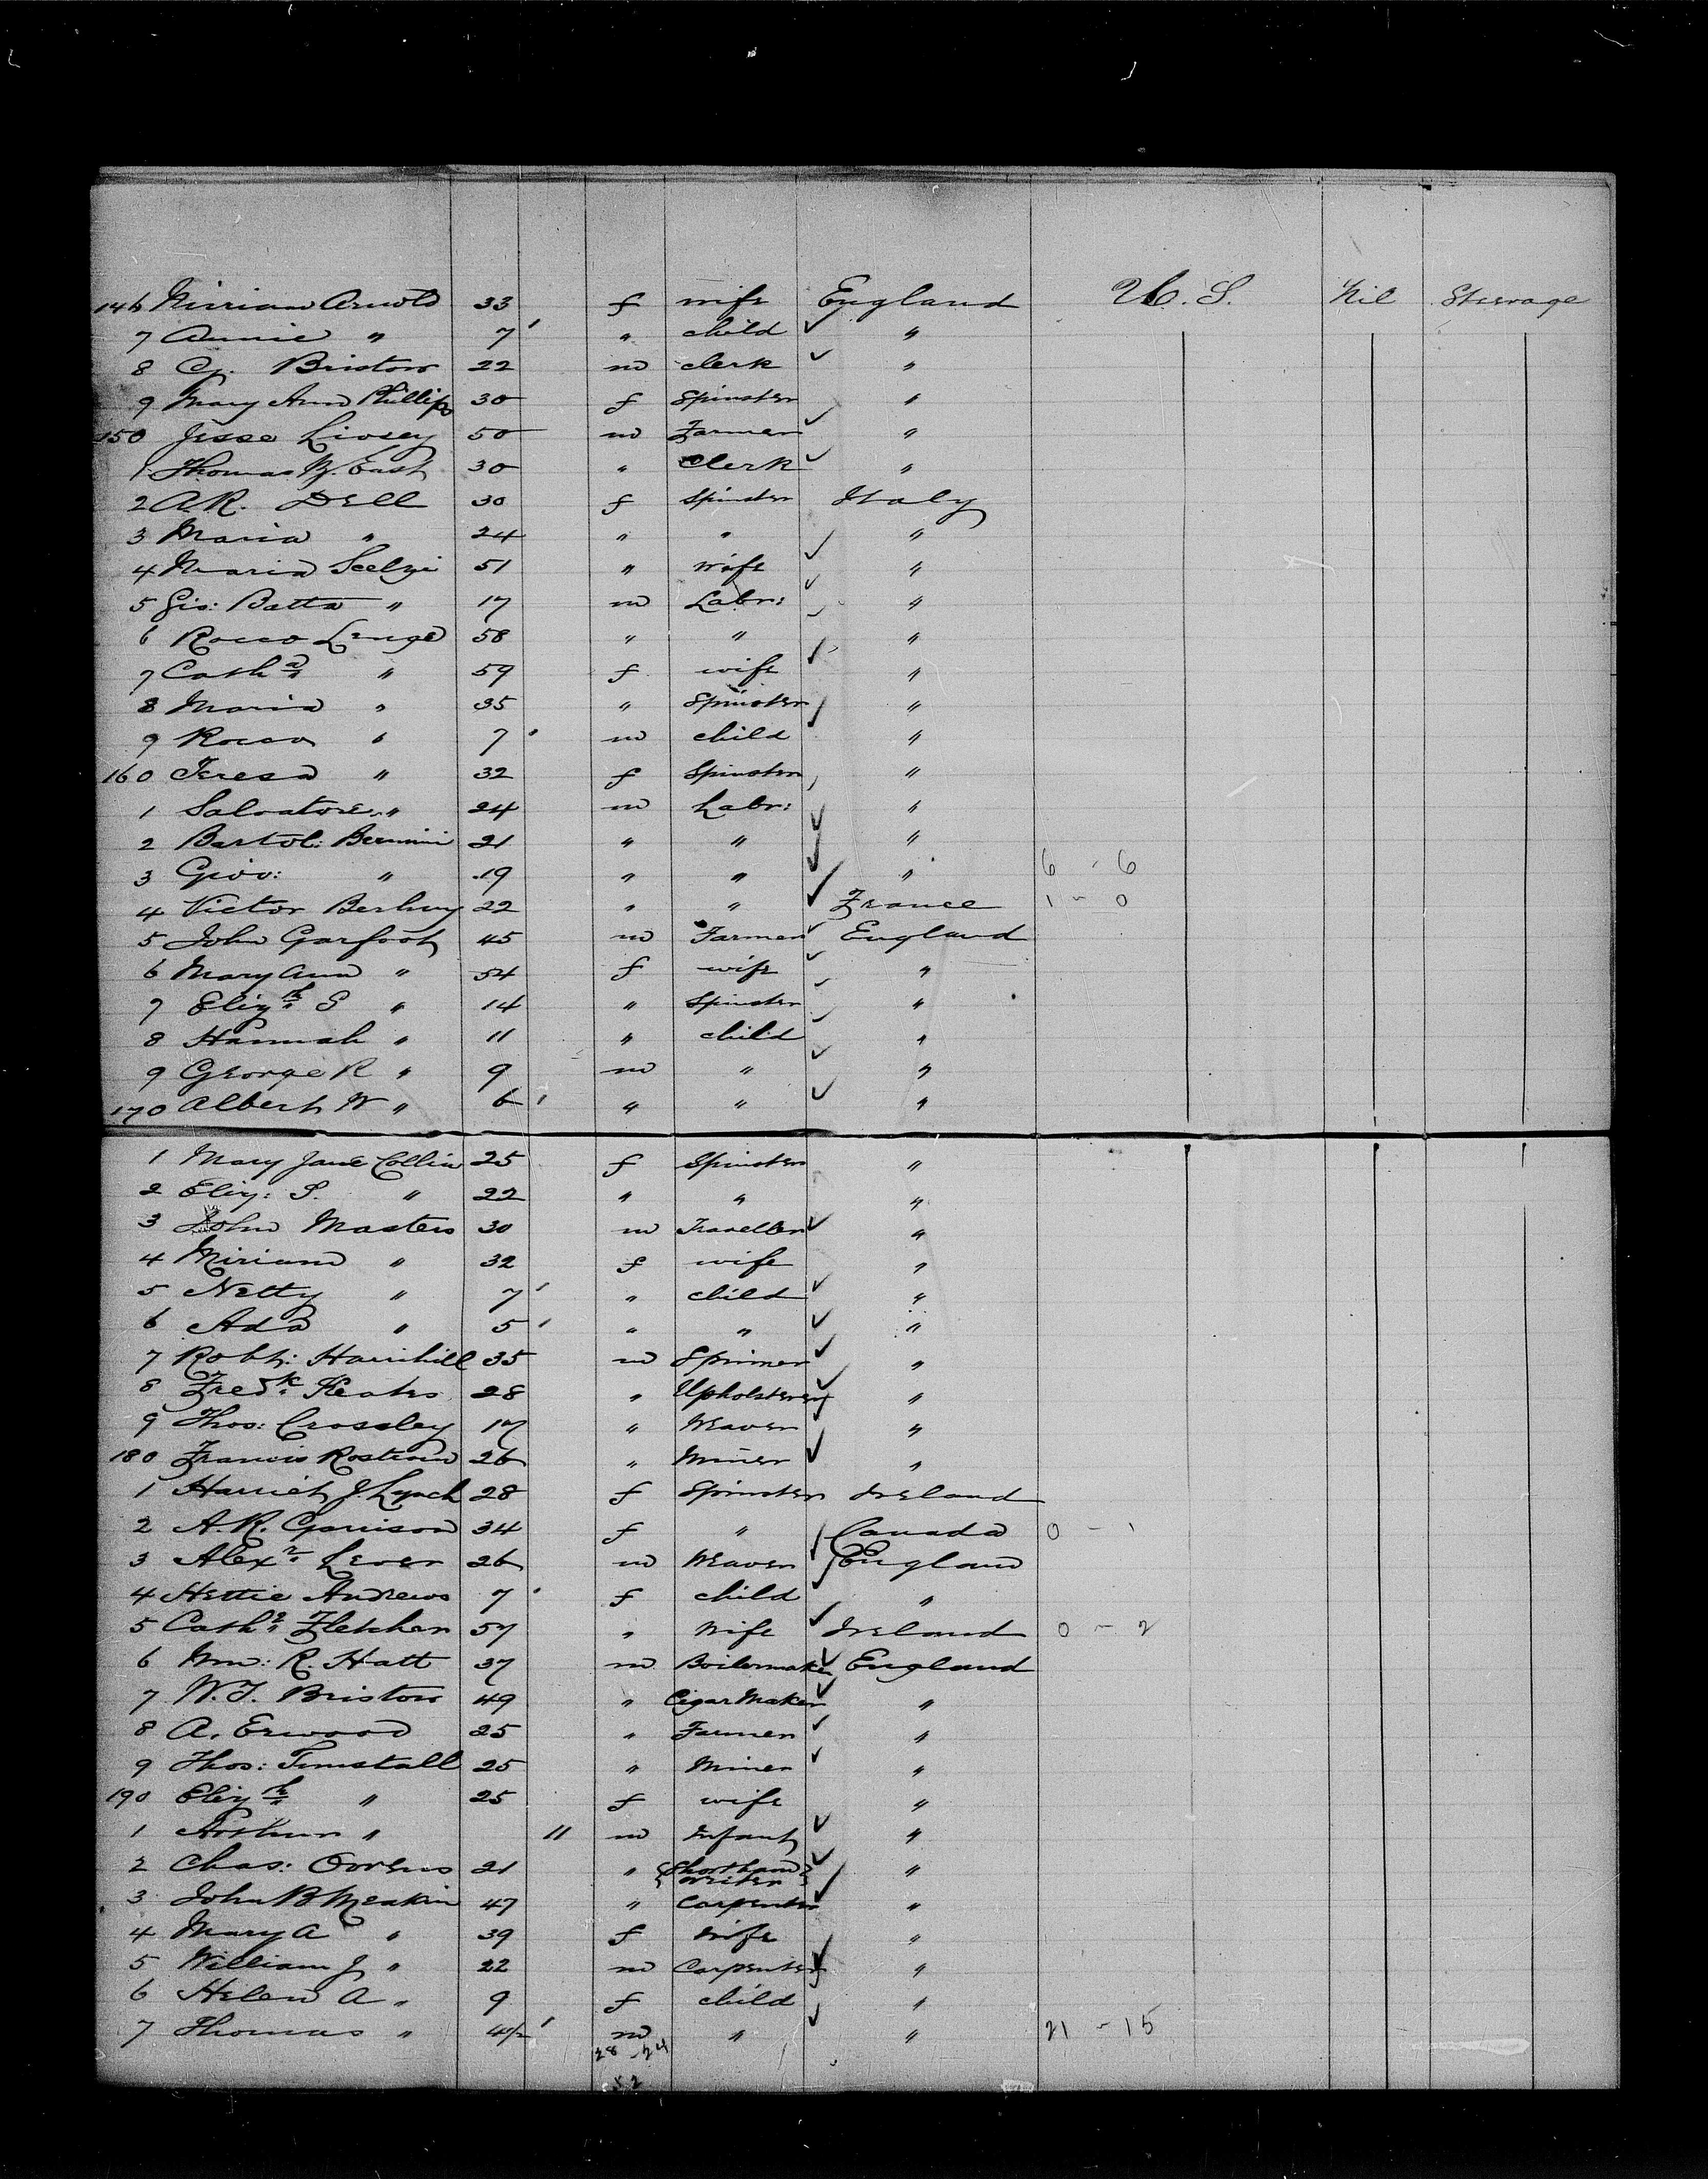 146 Mirriam Arnold 33 f wife England U.S. Nil Steerage
7 Annie " 7 " child "
8 Cy. Bristow 22 m clerk "
9 Mary Ann Phillips 30 f Spinster "
150 Jesse Livsey 50 m Farmer "
1 Thomas W. East 30 " Clerk "
2 A.R. Dell 30 f Spinster Italy
3 Maria " 24 " " "
4 Maria Scelzi 51 " wife "
5 Gio: Batta " 17 m Labr: "
6 Rocco Lenge 58 " " "
7 Cath a " 59 f wife "
8 Maria " 35 " Spinster "
9 Rocco " 7 m child "
160 Teresa " 32 f Spinster "
1 Salvatore " 24 m Labr: "
2 Bartol: Bernini 21 " " "
3 Giov: " 19 " " " 6 - 6
4 Victor 22 " " France 1 - 0
5 John Garfoot 45 m Farmer England
6 Mary Ann " 54 f wife "
7 Eliz th S " 14 " Spinster "
8 Hannah " 11 " child "
9 George R " 9 m " "
170 Albert W " 6 " " "
1 Mary Jane Collin 25 f Spinster "
2 Eliz: S. " 22 " " "
3 John Masters 30 m Traveller "
4 Miriam " 32 f wife "
5 Netty " 7 " child "
6 Ada " 5 " " "
7 Robt: Harrihill 35 m Spinner "
8 Fred k Keates 28 " Upholsterer "
9 Thos: Crossley 17 " Weaver "
180 Francis Rostron 26 " Miner "
1 Harriet J. Lynch 28 f Spinster Ireland
2 A.R. Garrison 34 f " Canada 0 - 1
3 Alex r Lever 26 m Weaver England
4 Hettie Andrews 7 f child "
5 Cath e Fletcher 57 " Wife Ireland 0 - 2
6 Wm: R. Hatt 37 m Boilermaker England
7 W.T. Bristow 49 " Cigar Maker "
8 A. Erwood 25 " Farmer "
9 Thos: Tunstall 25 " Miner "
190 Eliz th " 25 f wife "
1 Arthur " 11 m Infant "
2 Chas: Owens 21 " Shorthand writer "
3 John B Meakin 47 " Carpenter "
4 Mary A " 39 f Wife "
5 William J " 22 m Carpenter "
6 Helen A " 9 f child "
7 Thomas " 4½ m " " 21 - 15
28 - 24
52